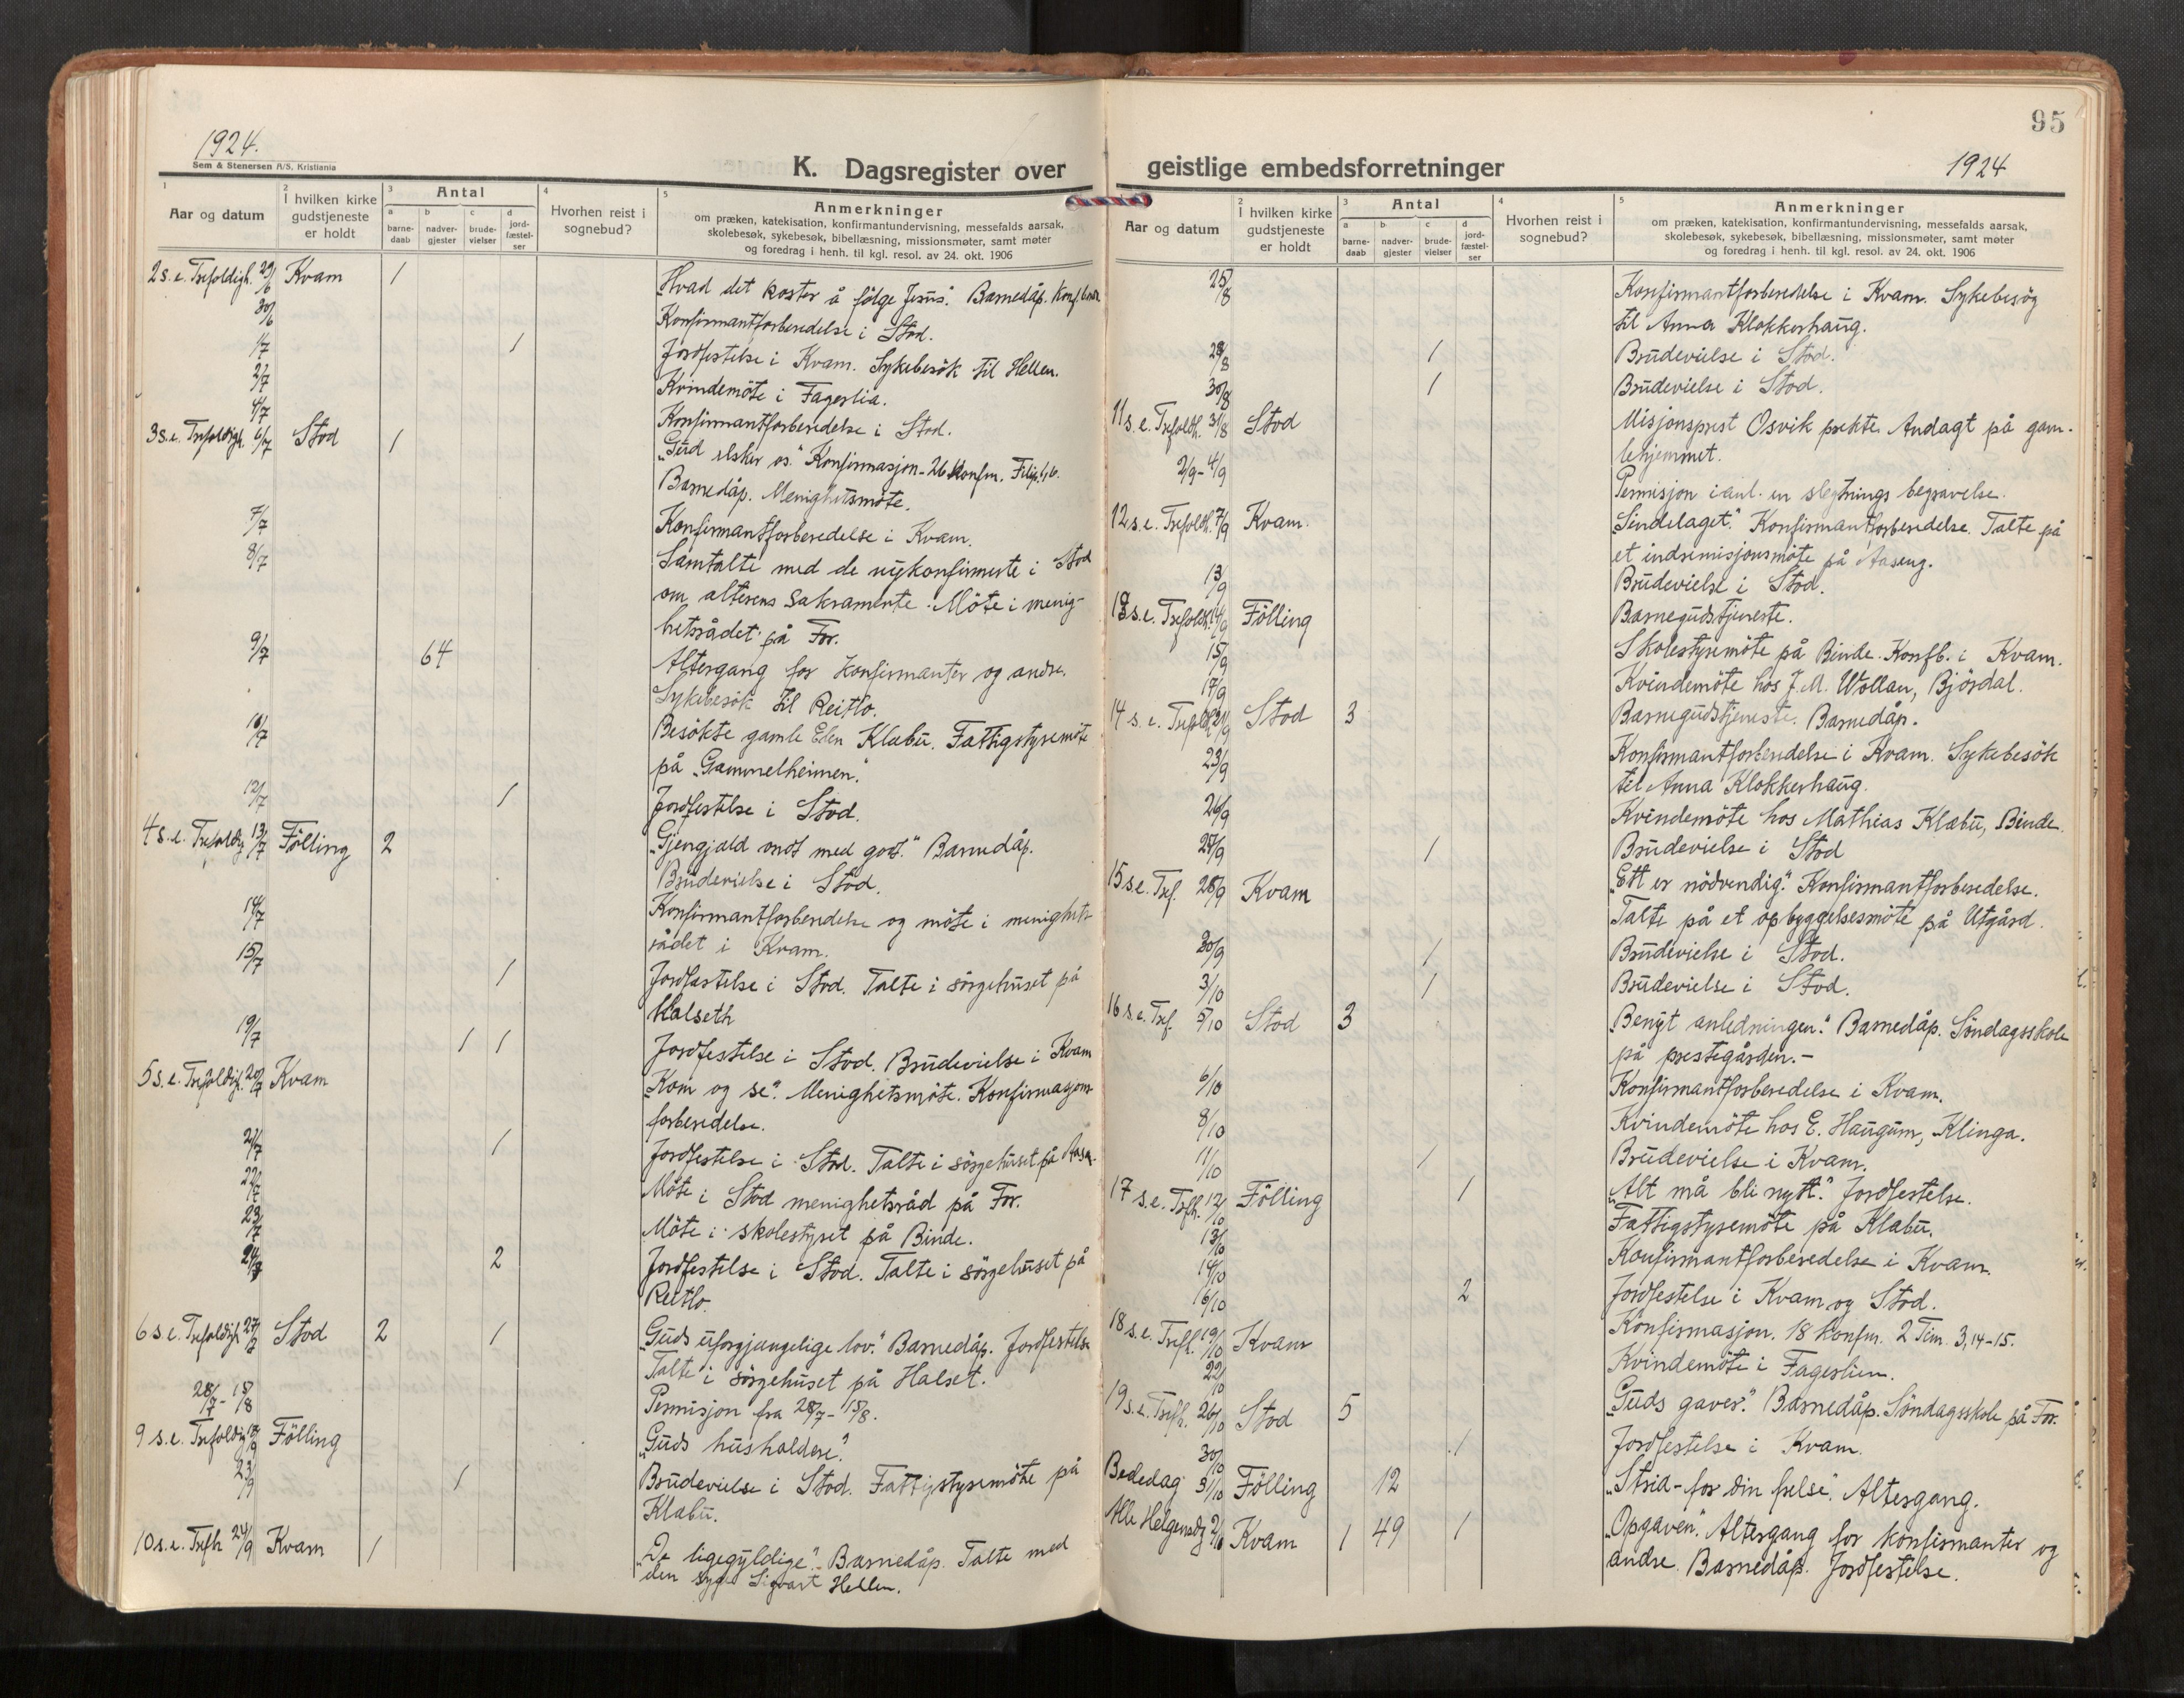 1924.
Sem & Stenersen A/S, Kristiania
K. Dagsregister over
1
Aar og datum
2
I hvilken kirke
gudstjeneste
er holdt
3
Antal
a
barne-
daab
b
nadver-
gjester
c
brude-
vielser
d
jord-
fæstel-
ser
4
Hvorhen reist i
sognebud?
5
Anmerkninger
om præken, katekisation, konfirmantundervisning, messefalds aarsak,
skolebesøk, sykebesøk, bibellæsning, missionsmøter, samt møter
og foredrag i henh. til kgl. resol. av 24. okt. 1906
2 s. e. Trefoldigh. 29/6 Kvam 1 „Hvad det koster å følge Jesus". Barnedåp.
30/6 Konfirmantforberedelse i Stod.
1/7 1 Jordfestelse i Kvam. Sykebesök til Hellem.
2/7 Kvindemöte i Fagerlia.
4/7 Konfirmantforberedelse i Stod.
3 s. e. Trefoldigh. 6/7 Stod 1 „Gud elsker os." Konfirmasjon - 26 konfm. Filip. 1,6.
Barnedåp. Menighetsmöte.
7/7 Konfirmantforberedelse i Kvam.
8/7 Samtalte med de nykonfirmerte i Stod
om alterens sakramente. Möte i menig-
hetsrådet på For.
9/7 64 Altergang for konfirmanter og andre.
Sykebesök til Reitlo.
10/7 Besökte gamle Elen Klæbu. Fattigstyremöte
på „Gammelheimen."
12/7 1 Jordfestelse i Stod.
4 s. e. Trefoldig 13/7 Fölling 2 „Gjengjæld ondt med godt." Barnedåp.
Brudevielse i Stod.
14/7 Konfirmantforberedelse og möte i menighets-
rådet i Kvam.
15/7 1 Jordfæstelse i Stod. Talte i sörgehuset på
Halseth
19/7 1 1 Jordfestelse i Stod. Brudevielse i Kvam
5 s. e. Trefoldigh. 20/7 Kvam „Kom og se". Menighetsmöte. Konfirmasjons-
forberedelse.
21/7 1 Jordfestelse i Stod. Talte i sörgehuset på
22/7 Möte i Stod menighetsråd på For.
23/7 Möte i skolestyret på Binde.
24/7 2 Jordfestelse i Stod. Talte i sörgehuset på
Reitlo.
6 s. e. Trefoldigh 27/7 Stod 2 1 „Guds uforgjængelige lov." Barnedåp. Jordfestelse
Talte i sörgehuset på Halset.
28/7 - 15/8 Permisjon fra 28/7 - 15/8.
9 s. e. Trefoldig Fölling „Guds husholdere".
23/9 1 Brudevielse i Stod. Fattigstyremöte på
Klæbu.
10 s. e. Trefh 24/9 Kvam 1 „De ligegyldige". Barnedåp. Talte med
den syge Sigvart Hellem.
95
geistlige embedsforretninger
1924
1
Aar og datum
2
I hvilken kirke
gudstjeneste
er holdt
3
Antal
a
barne-
daab
b
nadver-
gjester
c
brude-
vielser
d
jord-
fæstel-
ser
4
Hvorhen reist i
sognebud?
5
Anmerkninger
om præken, katekisation, konfirmantundervisning, messefalds aarsak,
skolebesøk, sykebesøk, bibellæsning, missionsmøter, samt møter
og foredrag i henh. til kgl. resol. av 24. okt. 1906
25/8 Konfirmantforberedelse i Kvam. Sykebesög
til Anna Klokkerhaug.
28/8 1 Brudevielse i Stod.
30/8 1 Brudevielse i Stod.
11 s. e. Trefoldh. 31/8 Stod Misjonsprest Osvik prekte. Andagt på gam-
lehjemmet.
2/9 - 4/9 Permisjon i anl. en slegtnings begravelse.
12 s. e. Trefoldh. 7/9 Kvam. „Sindelaget." Konfirmantforberedelse. Talte på
et indremisjonsmöte på Aaseng.
13/9 Brudevielse i Stod.
13 s. e. Trefoldh. 14/9 Fölling Barnegudstjeneste.
15/9 Skolestyremöte på Binde. Konfb. i Kvam.
17/9 Kvindemöte hos J. M. Wollan, Björdal.
14 s. e. Trefoldh 21/9 Stod 3 Barnegudstjeneste. Barnedåp.
23/9 Konfirmantforberedelse i Kvam. Sykebesök
til Anna Klokkerhaug.
26/9 Kvindemöte hos Mathias Klæbu, Binde.
27/9 1 Brudevielse i Stod
15 s. e. Tref. 28/9 Kvam „Ett er nödvendig." Konfirmantforberedelse.
Talte på et opbyggelsesmöte på Utgård.
30/9 1 Brudevielse i Stod.
3/10 1 Brudevielse i Stod.
16 s. e. Tref. 5/10 Stod 3 „Benyt anledningen." Barnedåp. Söndagsskole
på prestegården. -
6/10 Konfirmantforberedelse i Kvam.
8/10 Kvindemöte hos E. Haugum, Klinga.
11/10 1 Brudevielse i Kvam.
17 s. e. Trefh. 12/10 Fölling 1 „Alt må bli nytt." Jordfestelse.
13/10 Fattigstyremöte på Klæbu.
14/10 Konfirmantforberedelse i Kvam.
16/10 2 Jordfestelse i Kvam og Stod.
18 s. e. Trefh. 19/10 Kvam Konfirmasjon. 18 konfm. 2 Tim. 3,14-15.
22/10 Kvindemöte i Fagerlien.
19 s. e. Trefh. 26/10 Stod 5 „Guds gaver." Barnedåp. Söndagsskole på For.
30/10 1 Jordfestelse i Kvam.
Bededag 31/10 Fölling 12 „Strid - for din frelse". Altergang.
Alle Helgensdg Kvam 1 49 1 „Opgaven". Altergang for konfirmanter og
andre. Barnedåp. Jordfestelse.